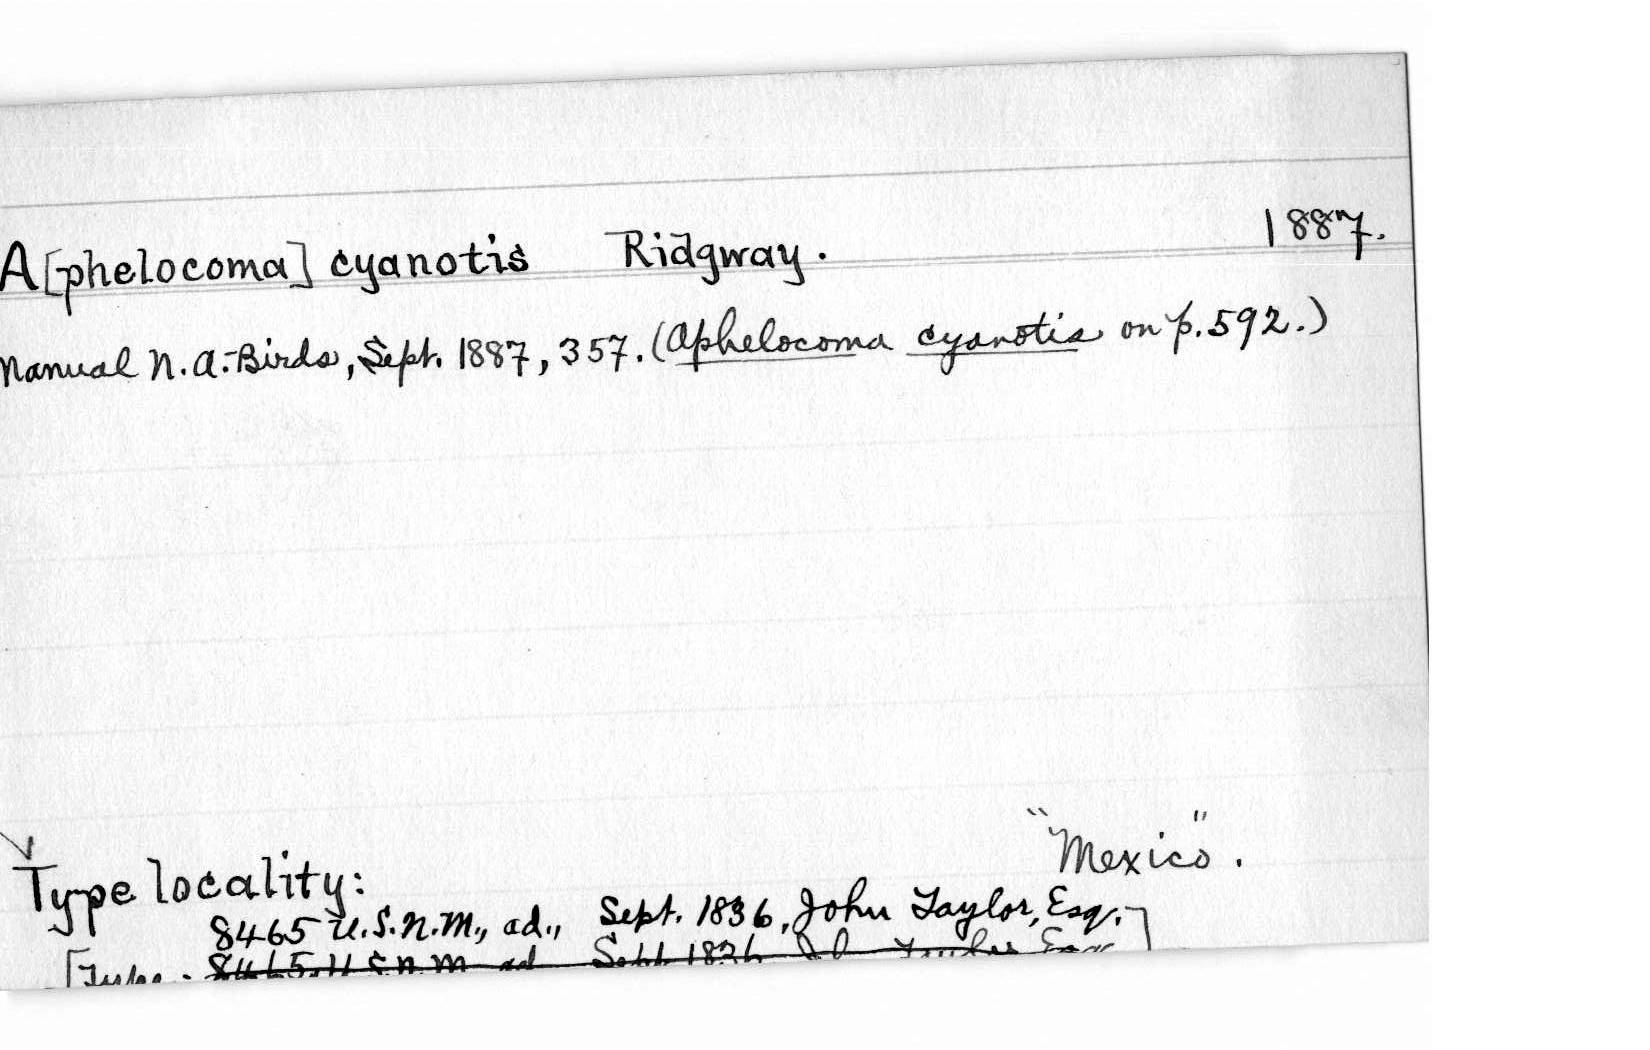 A[phelocoma] cyanotis Ridgway. 1887.
Manual N.A. Birds, Sept. 1887, 357. (Aphelocoma cyanotis on p. 592.)
"Mexico".
Type locality:
8465 U.S.N.M., ad., Sept. 1836, John Taylor, Esq.]
[Type: 8465 U.S.N.M. ad. Sept. 1836 John Taylor Esq.